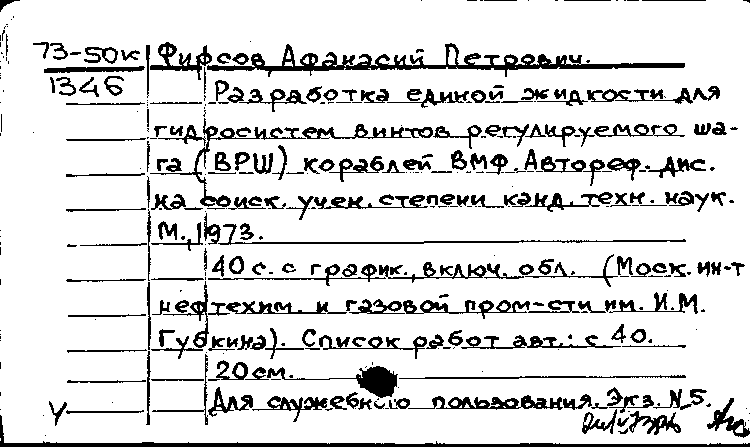 73-50к Фирсов, Афанасий Петрович.
1346 Разработка единой жидкости для
гидросистем винтов регулируемого ша-
га (ВРШ) кораблей ВМФ. Автореф. дис.
на соиск. учен. степени канд. техн. наук.
М., 1973.
40 с. с график., включ. обл. (Моск. ин-т
нефтехим. и газовой пром-сти им. И.М.
Губкина). Список работ авт.: с. 40.
20 см.
У Для служебного пользования. Экз. N 5.